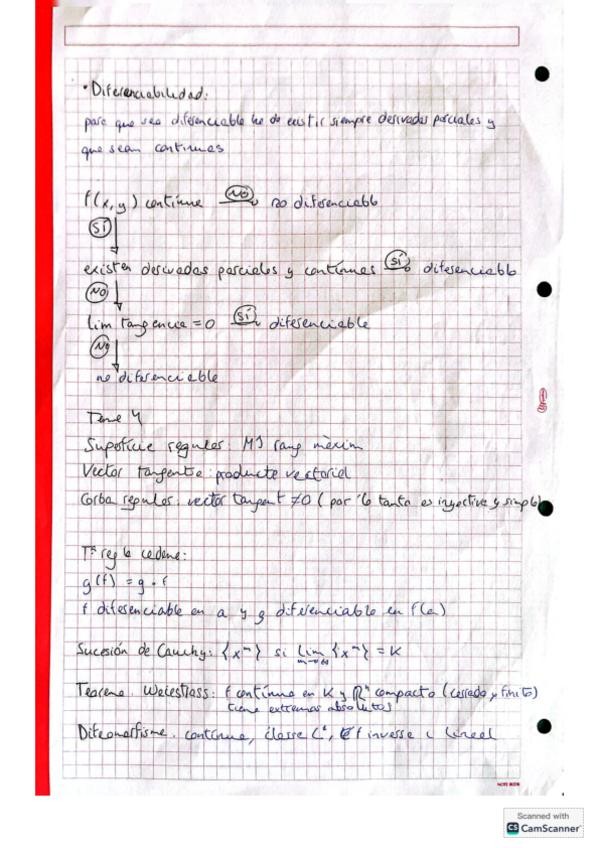 • Diferenciabilidad:
para que sea diferenciable ha de existir siempre derivadas parciales y
que sean continuas
f(x,y) continua NO no diferenciable
SÍ
existen derivadas parciales y continuas SÍ diferenciable
NO
lim tangencia = 0 SÍ diferenciable
NO
no diferenciable
Tema 4
Superficie regular: MJ rang màxim
Vector tangente: producte vectorial
Corba regular: vector tangent ≠0 (por lo tanto es inyectiva y simple)
Tª regla cadena:
g(f) = g · f
f diferenciable en a y g diferenciable en f(a)
Sucesión de Cauchy: {xᵐ} si lim {xᵐ} = K
m→∞
Teorema Weierstrass: f contínua en K y ℝⁿ compacto (cerrado y finito)
tiene extremos absolutos
Difeomorfisme: contínua, classe C¹, f inversa i lineal
NOTE BOOK
Scanned with
CS CamScanner